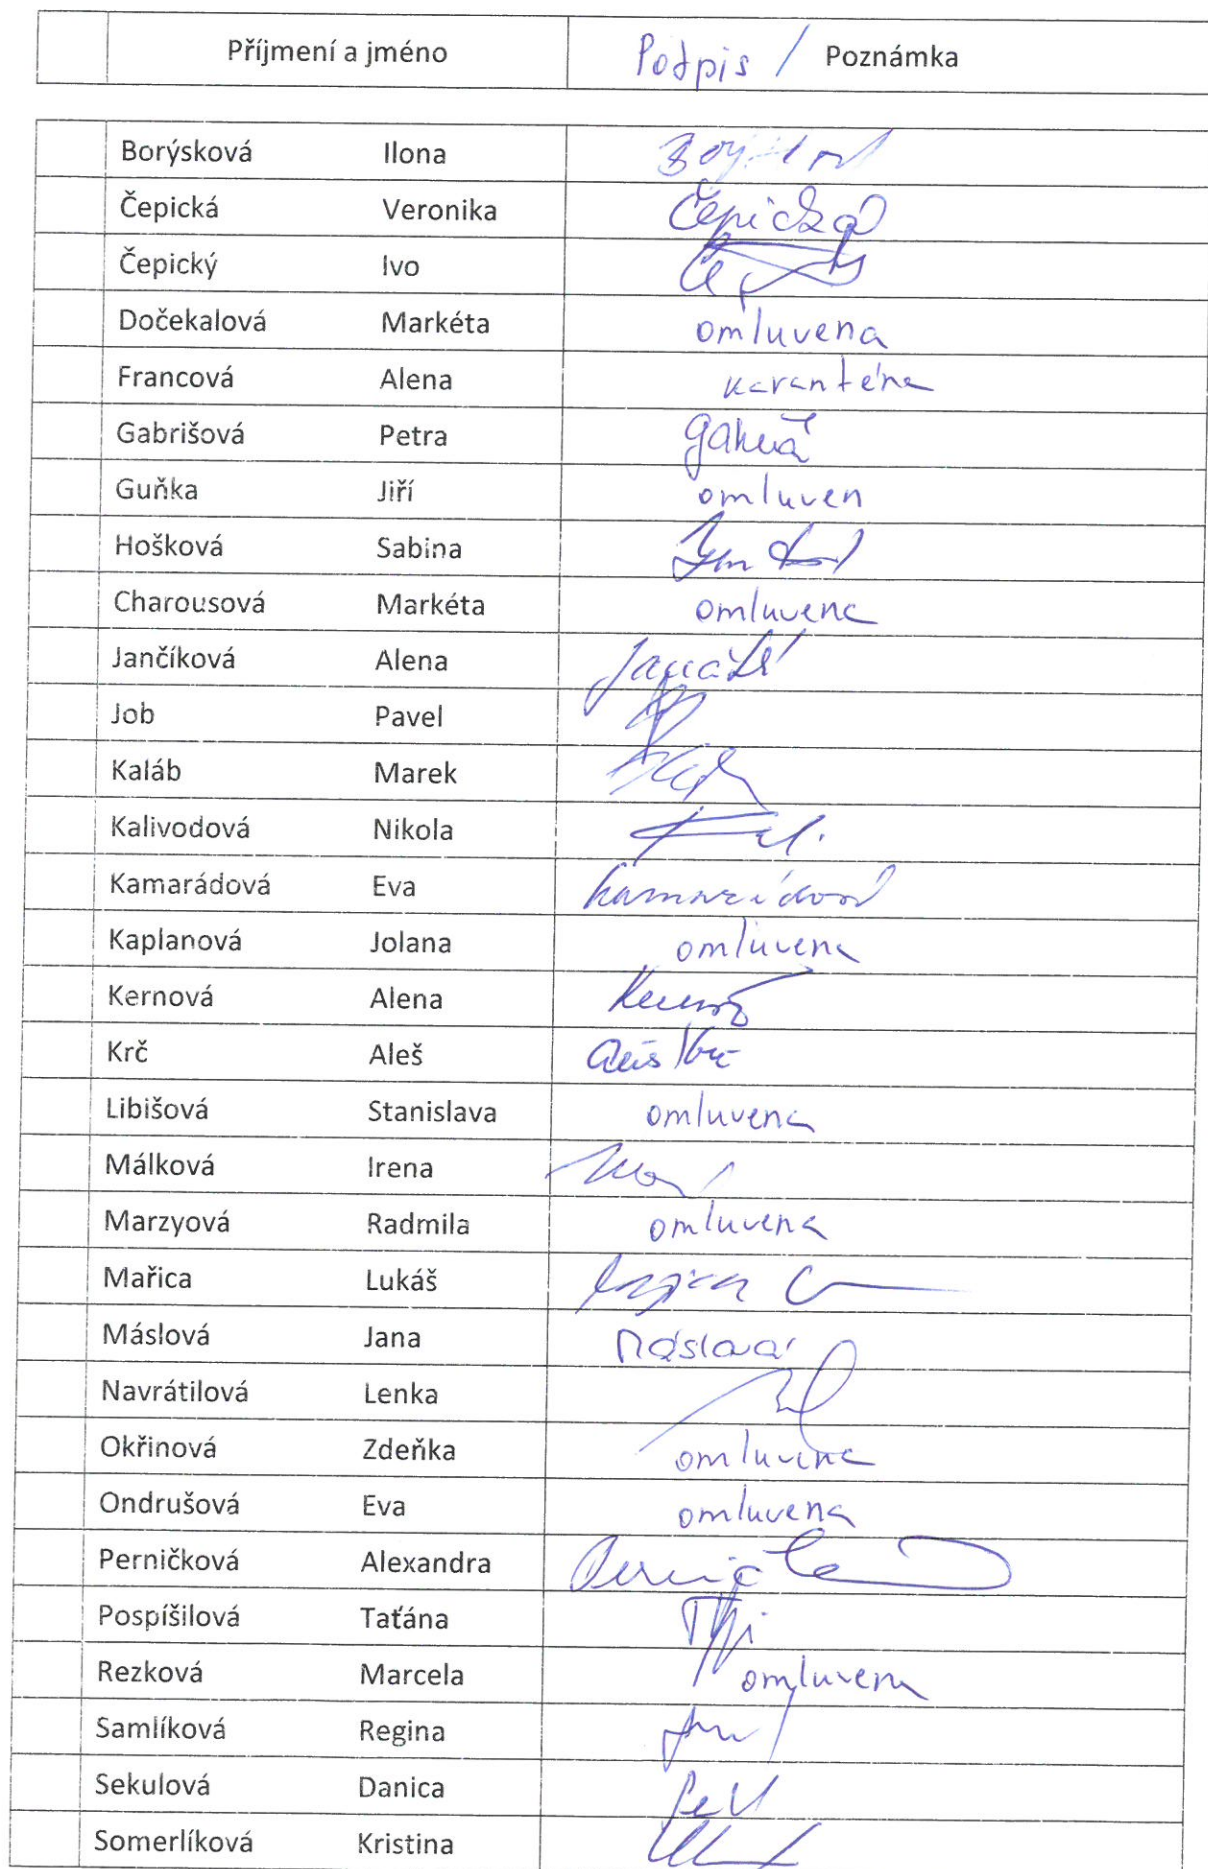 Příjmení a jméno Podpis / Poznámka
Borýsková Ilona
Čepická Veronika Čepická
Čepický Ivo
Dočekalová Markéta omluvena
Francová Alena karanténa
Gabrišová Petra
Guňka Jiří omluven
Hošková Sabina
Charousová Markéta omluvena
Jančíková Alena
Job Pavel
Kaláb Marek
Kalivodová Nikola
Kamarádová Eva Kamarádová
Kaplanová Jolana omluvena
Kernová Alena
Krč Aleš Aleš Krč
Libišová Stanislava omluvena
Málková Irena
Marzyová Radmila omluvena
Mařica Lukáš
Máslová Jana Máslová
Navrátilová Lenka
Okřinová Zdeňka omluvena
Ondrušová Eva omluvena
Perničková Alexandra
Pospíšilová Taťána
Rezková Marcela omluvena
Samlíková Regina
Sekulová Danica
Somerlíková Kristina